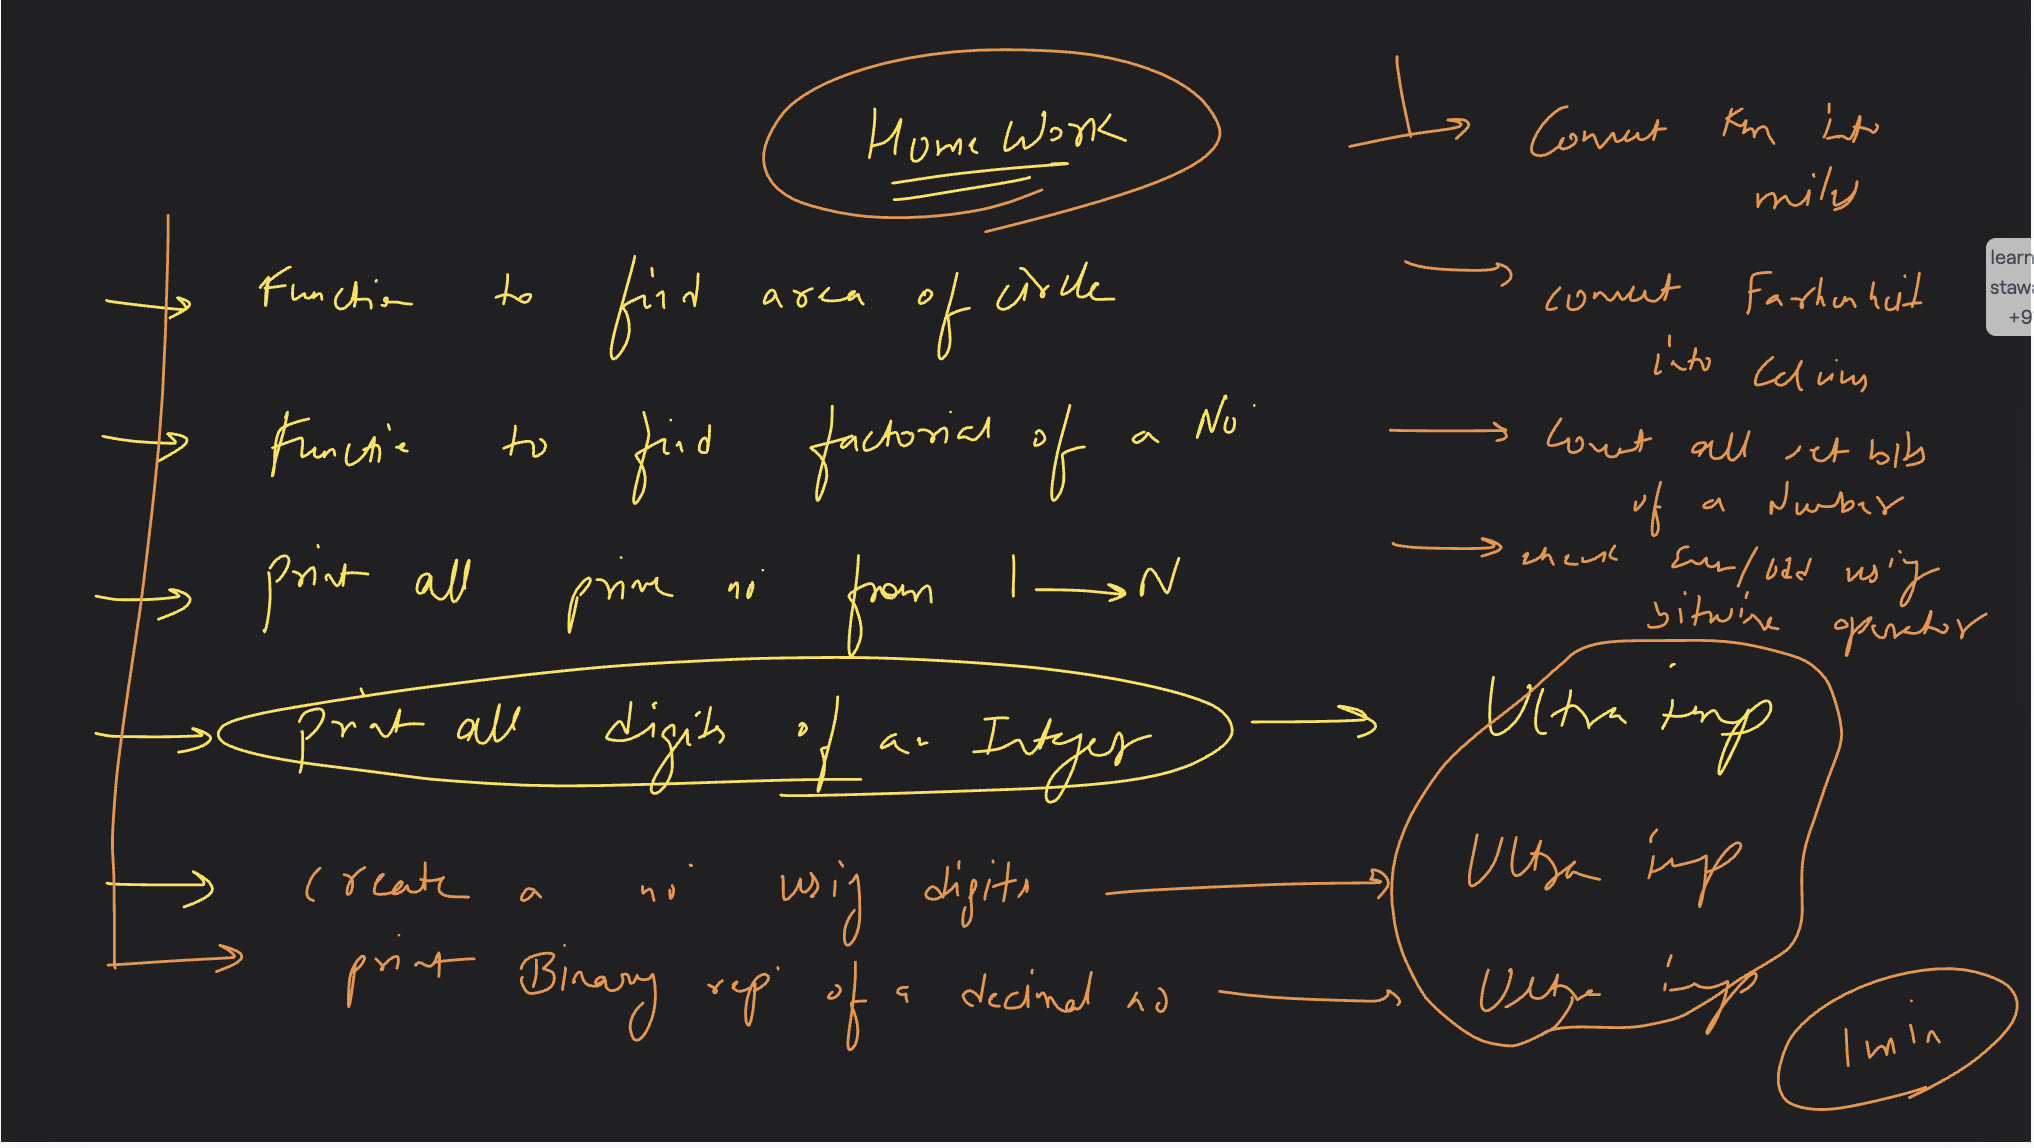 Home Work
Function to find area of circle
Function to find factorial of a No.
print all prime no. from 1 → N
print all digits of an Integer → Ultra imp
create a no. using digits → Ultra imp
print Binary rep. of a decimal no → Ultra imp
Convert Km into
miles
convert Farhenheit
into Celsius
Count all set bits
of a Number
check Even/odd using
bitwise operator
1 min
learn
stawa
+9